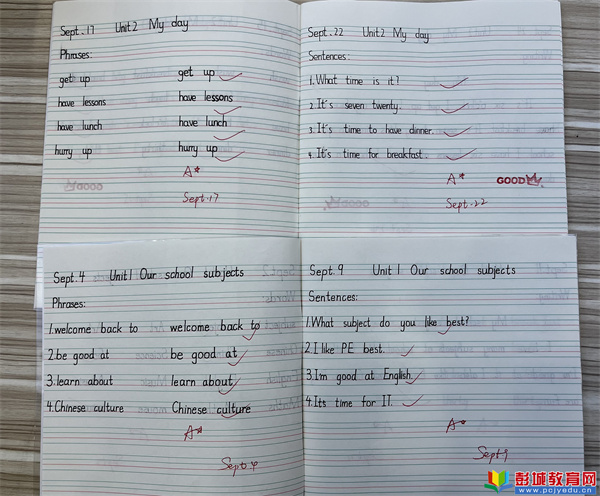 Sept.17 Unit2 My day
Phrases:
get up get up
have lessons have lessons
have lunch have lunch
hurry up hurry up
A*
Sept.17
Sept.22 Unit2 My day
Sentences:
1.What time is it?
2.It's seven twenty.
3.It's time to have dinner.
4.It's time for breakfast.
A*
GOOD
Sept.22
Sept.4 Unit1 Our school subjects
Phrases:
1.welcome back to welcome back to
2.be good at be good at
3.learn about learn about
4.Chinese culture Chinese culture
A*
Sept.4
Sept.9 Unit1 Our school subjects
Sentences:
1.What subject do you like best?
2.I like PE best.
3.I'm good at English.
4.Its time for IT.
A*
Sept.9
彭城教育网
www.pcjyedu.cn